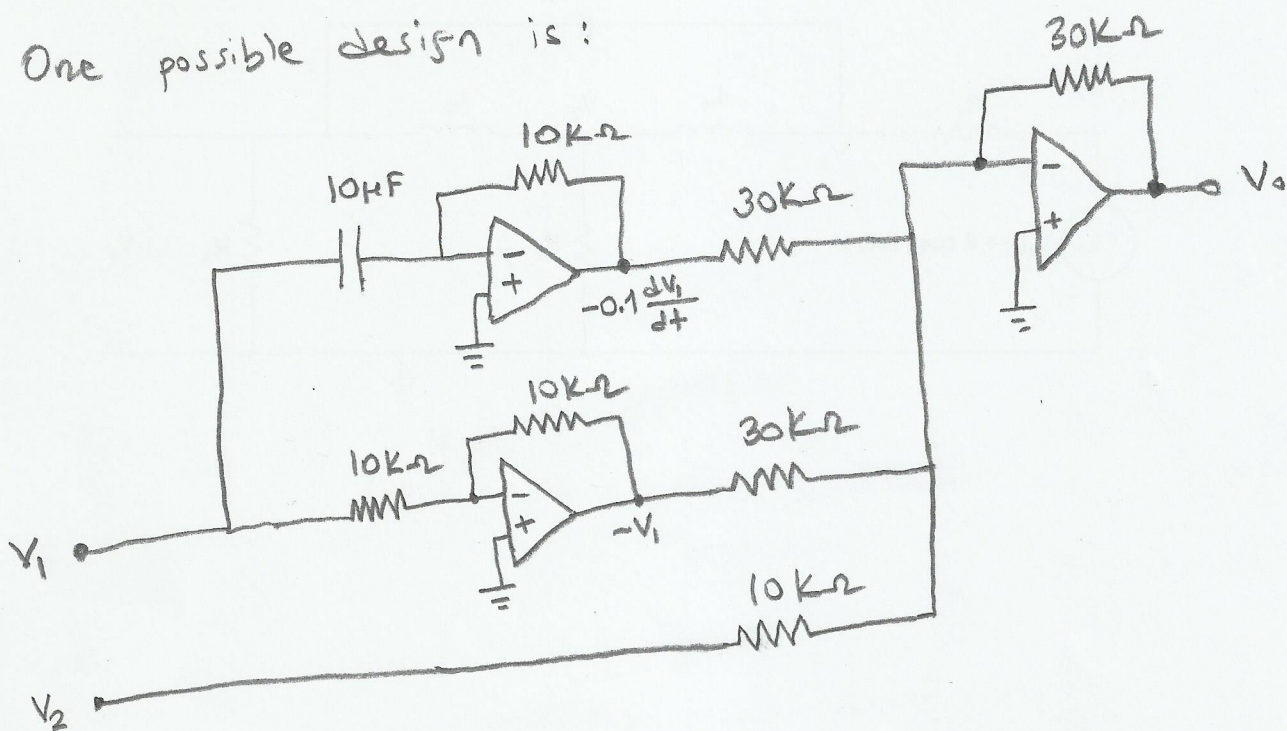 One possible design is:
30KΩ
10KΩ
10µF
30KΩ
-
+
V₀
-
+
-0.1 dV₁/dt
10KΩ
10KΩ
30KΩ
-
+
-V₁
V₁
10KΩ
V₂